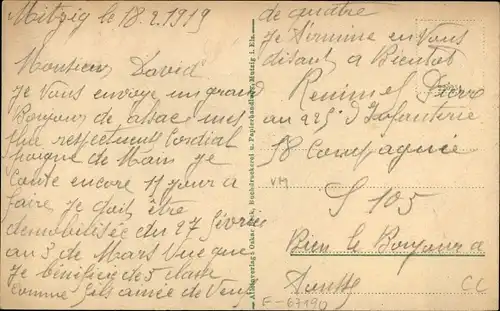 Mutzig le 18.2.1919
Monsieur David
Je vous envoye un grand
Bonjour de alsac mes
plus respectueuse Cordial
poigne de Main je
Conte encore 11 jour a
faire je doit être
demobilisée du 27 fevrier
au 3 de Mars Vue que
je benificie de 5 classe
comme fils ainée de Veuf
de quatre
je Termine en Vous
disant a Bientot
Remimel Pierre
au 225 d Infanterie
18 Compagnie
S 105
Bien le Bonjour a
VM
CC
F-67190
Oskar Buchdruckerei u. Papierhandlung, Mutzig i. Els.